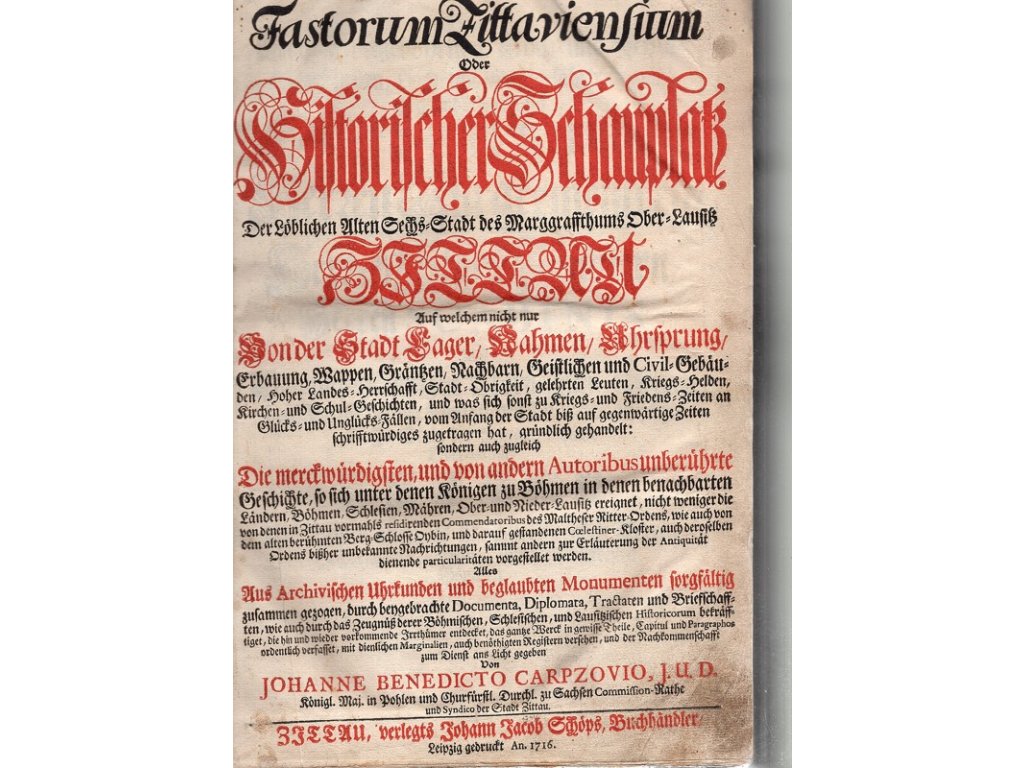 Fastorum Zittaviensium
Oder
Historischer Schauplatz
Der Löblichen Alten Sechs-Stadt des Marggraffthums Ober-Lausitz
ZITTAU
Auf welchem nicht nur
Von der Stadt Lager/ Nahmen/ Uhrsprung/
Erbauung, Wappen, Gräntzen, Nachbarn, Geistlichen und Civil-Gebäu-
den, Hoher Landes-Herrschafft, Stadt-Obrigkeit, gelehrten Leuten, Kriegs-Helden,
Kirchen- und Schul-Geschichten, und was sich sonst zu Kriegs- und Friedens-Zeiten an
Glücks- und Unglücks-Fällen, vom Anfang der Stadt biß auf gegenwärtige Zeiten
schrifftwürdiges zugetragen hat, gründlich gehandelt:
sondern auch zugleich
Die merckwürdigsten, und von andern Autoribus unberührte
Geschichte, so sich unter denen Königen zu Böhmen in denen benachbarten
Ländern, Böhmen, Schlesien, Mähren, Ober- und Nieder-Lausitz ereignet, nicht weniger die
von denen in Zittau vormahls residirenden Commendatoribus des Maltheser Ritter-Ordens, wie auch von
dem alten berühmten Berg-Schlosse Oybin, und darauf gestandenen Cœlestiner-Kloster, auch deroselben
Ordens bißher unbekannte Nachrichtungen, sammt andern zur Erläuterung der Antiquität
dienende particularitäten vorgestellet werden.
Alles
Aus Archivischen Uhrkunden und beglaubten Monumenten sorgfältig
zusammen gezogen, durch beygebrachte Documenta, Diplomata, Tractaten und Brieffschaff-
ten, wie auch durch das Zeugnüß derer Böhmischen, Schlesischen, und Lausitzischen Historicorum bekräff-
tiget, die hin und wieder vorkommende Irrthümer entdecket, das gantze Werck in gewisse Theile, Capitul und Paragraphos
ordentlich verfasset, mit dienlichen Marginalien, auch benöthigten Registern versehen, und der Nachkommenschafft
zum Dienst ans Licht gegeben
Von
JOHANNE BENEDICTO CARPZOVIO, J.U.D.
Königl. Maj. in Pohlen und Churfürstl. Durchl. zu Sachsen Commission-Rathe
und Syndico der Stadt Zittau.
ZITTAU, verlegts Johann Jacob Schöps, Buchhändler/
Leipzig gedruckt An. 1716.